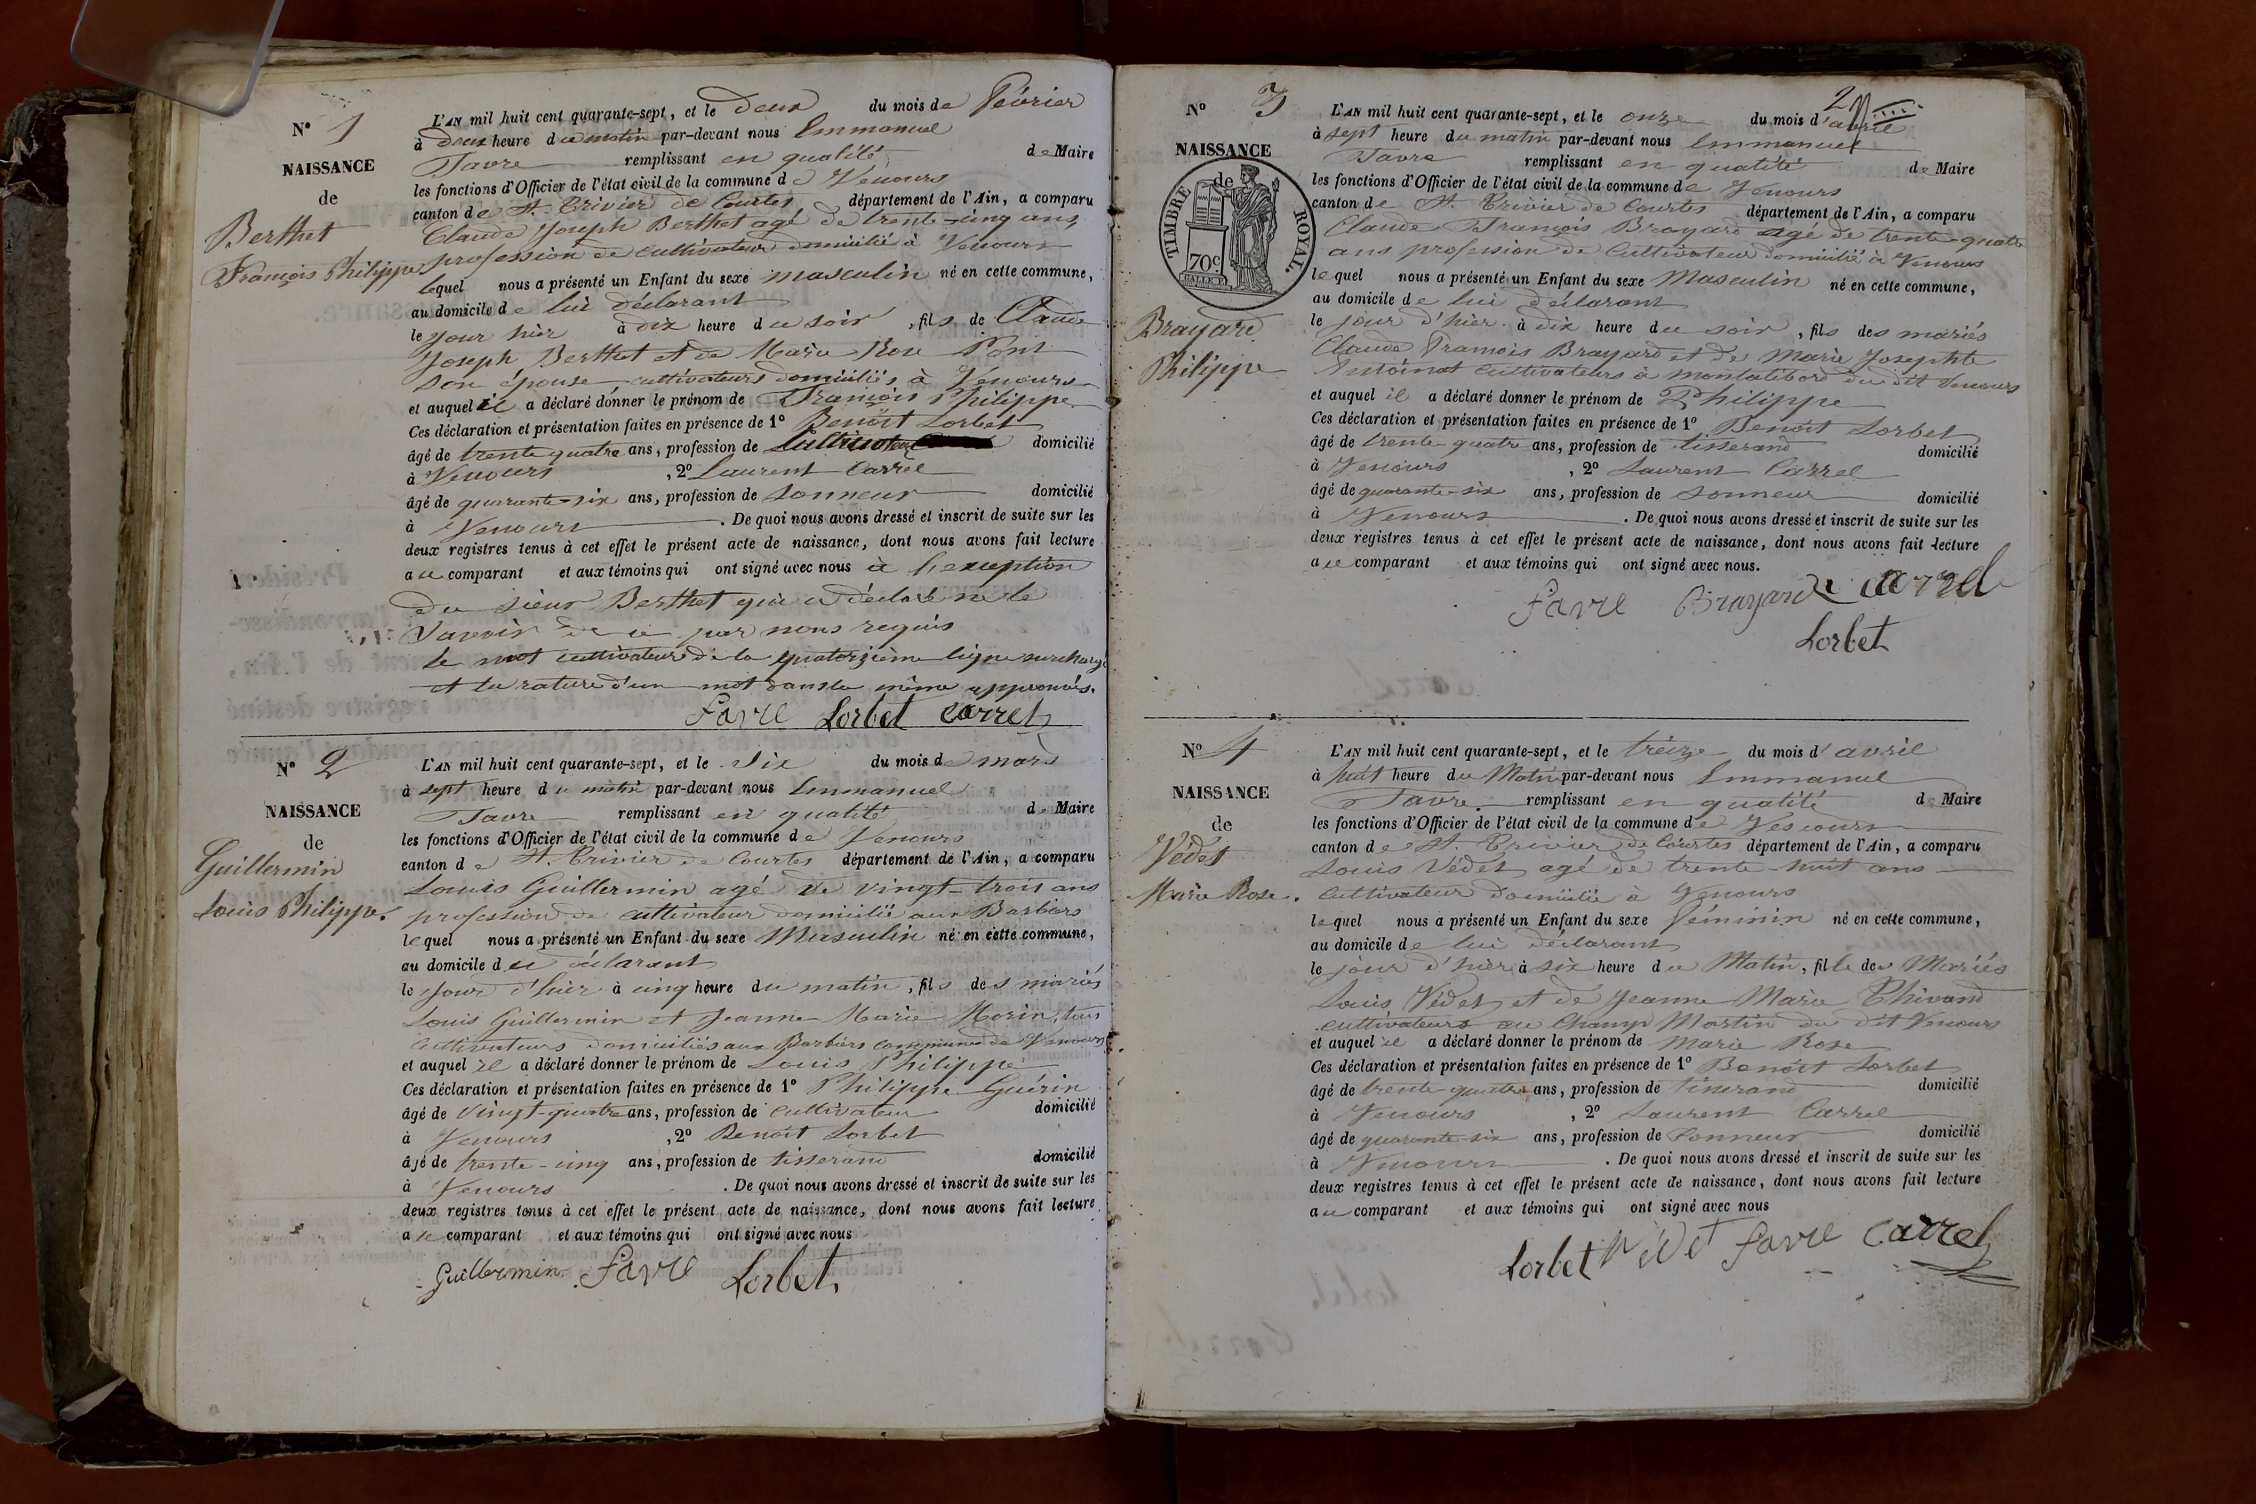 N° 1
NAISSANCE
de
Berthet
François Philippe
L'AN mil huit cent quarante-sept, et le deux du mois de février
à deux heure du matin par-devant nous Emmanuel
Favre remplissant en qualité de Maire
les fonctions d'Officier de l'état civil de la commune de Vescours
canton de St. Trivier de Courtes, département de l'Ain, a comparu
Claude Joseph Berthet agé de trente-cinq ans,
profession de cultivateur domicilié à Vescours
lequel nous a présenté un Enfant du sexe masculin né en cette commune,
au domicile de lui déclarant
le jour hier à dix heure du soir, fils de Claude
Joseph Berthet et de Marie Rose Pont
son épouse cultivateurs domiciliés à Vescours
et auquel il a déclaré donner le prénom de François Philippe
Ces déclaration et présentation faites en présence de 1° Benoît Lorbet
âgé de trente quatre ans, profession de Cultivateur domicilié
à Vescours, 2° Laurent Carrel
âgé de quarante-six ans, profession de sonneur domicilié
à Vescours. De quoi nous avons dressé et inscrit de suite sur les
deux registres tenus à cet effet le présent acte de naissance, dont nous avons fait lecture
au comparant et aux témoins qui ont signé avec nous à l'exception
du sieur Berthet qui a déclaré ne le
savoir de ce par nous requis
le mot cultivateur de la quatorzième ligne surchargé
et la rature d'un mot dans la même approuvés.
Favre Lorbet Carrel
N° 2
NAISSANCE
de
Guillermin
Louis Philippe.
L'AN mil huit cent quarante-sept, et le six du mois de mars
à sept heure du matin par-devant nous Emmanuel
Favre remplissant en qualité de Maire
les fonctions d'Officier de l'état civil de la commune de Vescours
canton de St. Trivier de Courtes département de l'Ain, a comparu
Louis Guillermin agé de vingt-trois ans
profession de cultivateur domicilié aux Barbiers
lequel nous a présenté un Enfant du sexe Masculin né en cette commune,
au domicile du déclarant
le jour d'hier à cinq heure du matin, fils des mariés
Louis Guillermin et Jeanne Marie Morin, tous
cultivateurs domiciliés aux Barbiers commune de Vescours
et auquel il a déclaré donner le prénom de Louis Philippe
Ces déclaration et présentation faites en présence de 1° Philippe Guérin
âgé de vingt-quatre ans, profession de cultivateur domicilié
à Vescours, 2° Benoît Lorbet
âgé de trente-cinq ans, profession de tisserand domicilié
à Vescours. De quoi nous avons dressé et inscrit de suite sur les
deux registres tenus à cet effet le présent acte de naissance, dont nous avons fait lecture
au comparant et aux témoins qui ont signé avec nous
Guillermin Favre Lorbet
2
N° 3
NAISSANCE
de
TIMBRE ROYAL.
70c
Brayard
Philippe
L'AN mil huit cent quarante-sept, et le onze du mois d'avril
à sept heure du matin par-devant nous Emmanuel
Favre remplissant en qualité de Maire
les fonctions d'Officier de l'état civil de la commune de Vescours
canton de St. Trivier de Courtes département de l'Ain, a comparu
Claude François Brayard agé de trente-quatre
ans profession de Cultivateur domicilié à Vescours
lequel nous a présenté un Enfant du sexe Masculin né en cette commune,
au domicile de lui déclarant
le jour d'hier à dix heure du soir, fils des mariés
Claude François Brayard et de Marie Josephte
cultivateurs à du dit Vescours
et auquel il a déclaré donner le prénom de Philippe
Ces déclaration et présentation faites en présence de 1° Benoît Lorbet
âgé de trente-quatre ans, profession de tisserand domicilié
à Vescours, 2° Laurent Carrel
âgé de quarante-six ans, profession de sonneur domicilié
à Vescours. De quoi nous avons dressé et inscrit de suite sur les
deux registres tenus à cet effet le présent acte de naissance, dont nous avons fait lecture
au comparant et aux témoins qui ont signé avec nous.
Favre Brayard Carrel
Lorbet
N° 4
NAISSANCE
de
Védet
Marie Rose.
L'AN mil huit cent quarante-sept, et le treize du mois d'avril
à huit heure du Matin par-devant nous Emmanuel
Favre remplissant en qualité de Maire
les fonctions d'Officier de l'état civil de la commune de Vescours
canton de St. Trivier de Courtes département de l'Ain, a comparu
Louis Védet agé de trente-huit ans
Cultivateur domicilié à Vescours
lequel nous a présenté un Enfant du sexe féminin né en cette commune,
au domicile de lui déclarant
le jour d'hier à six heure du Matin, fille des Mariés
Louis Védet et de Jeanne Marie Thivand
cultivateurs au Champ Martin du dit Vescours
et auquel il a déclaré donner le prénom de Marie Rose
Ces déclaration et présentation faites en présence de 1° Benoît Lorbet
âgé de trente-quatre ans, profession de tisserand domicilié
à Vescours, 2° Laurent Carrel
âgé de quarante-six ans, profession de Sonneur domicilié
à Vescours. De quoi nous avons dressé et inscrit de suite sur les
deux registres tenus à cet effet le présent acte de naissance, dont nous avons fait lecture
au comparant et aux témoins qui ont signé avec nous
Lorbet Védet Favre Carrel